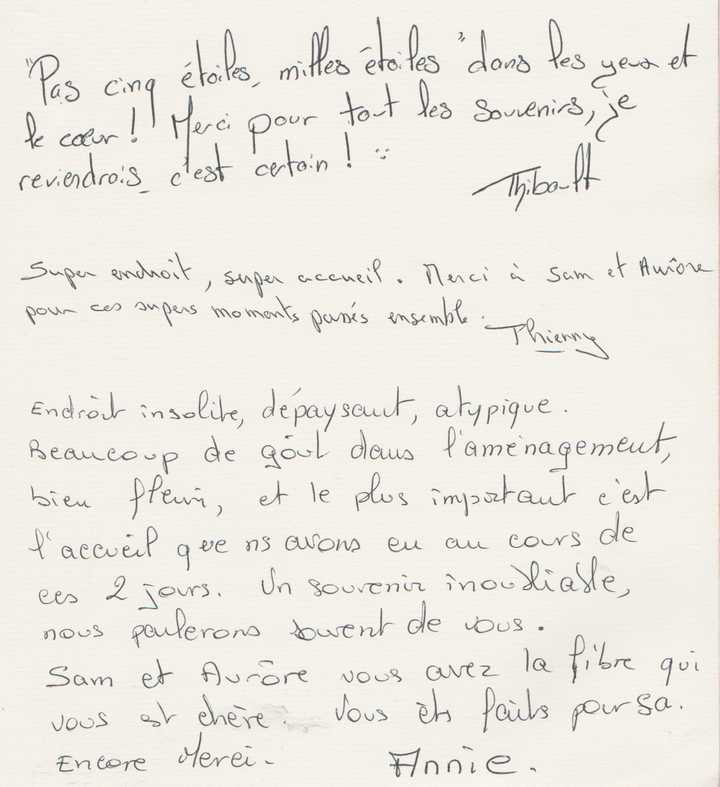 "Pas cinq étoiles, milles étoiles" dans les yeux et
le cœur ! Merci pour tout les souvenirs, je
reviendrois, c'est certain !
Thibault
Super endroit, super accueil. Merci à Sam et Aurôre
pour ces supers moments passés ensemble.
Thierry
Endrôit insolite, dépaysant, atypique.
Beaucoup de goût dans l'aménagement,
bien fleuri, et le plus important c'est
l'accueil que ns avons eu au cours de
ces 2 jours. Un souvenir inoubliable,
nous parlerons souvent de vous.
Sam et Aurôre vous avez la fibre qui
vous est chère. Vous êts faits pour sa.
Encore Merci.
Annie.